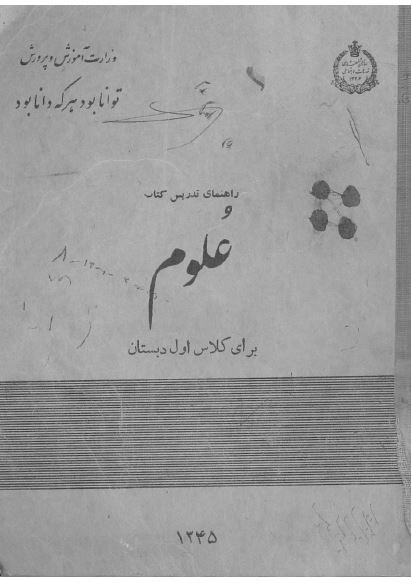 وزارت آموزش و پرورش
توانا بود هر که دانا بود
راهنمای تدریس کتاب
علوم
برای کلاس اول دبستان
۱۳۴۵